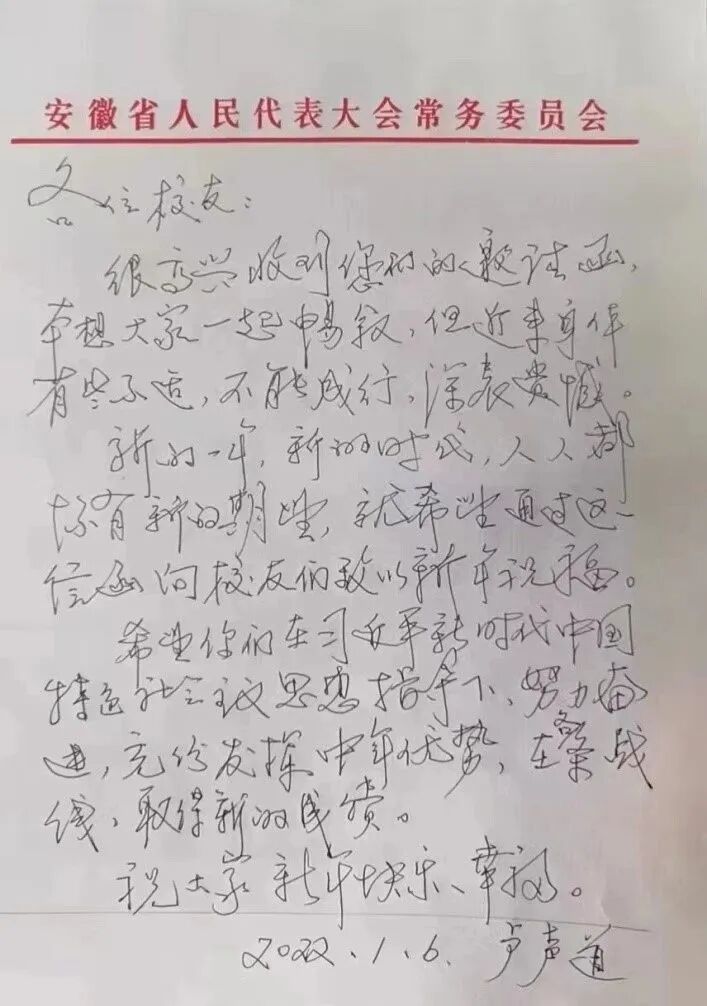 安徽省人民代表大会常务委员会
各位校友：
很高兴收到您们的邀请函，
本想大家一起畅叙，但近来身体
有些不适，不能成行，深表遗憾。
新的一年，新的时代，人人都
怀有新的期望，就希望通过这一
信函向校友们致以新年祝福。
希望你们在习近平新时代中国
特色社会主义思想指导下，努力奋
进，充份发挥中年优势，在各条战
线，取得新的成绩。
祝大家新年快乐、幸福。
2022.1.6. 卢声道